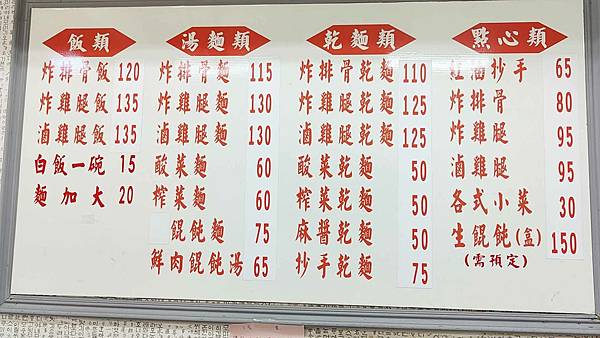 飯類
炸排骨飯 120
炸雞腿飯 135
滷雞腿飯 135
白飯一碗 15
麵加大 20
湯麵類
炸排骨麵 115
炸雞腿麵 130
滷雞腿麵 130
酸菜麵 60
榨菜麵 60
餛飩麵 75
鮮肉餛飩湯 65
乾麵類
炸排骨乾麵 110
炸雞腿乾麵 125
滷雞腿乾麵 125
酸菜乾麵 50
榨菜乾麵 50
麻醬乾麵 50
抄手乾麵 75
點心類
紅油抄手 65
炸排骨 80
炸雞腿 95
滷雞腿 95
各式小菜 30
生餛飩(盒) 150
(需預定)